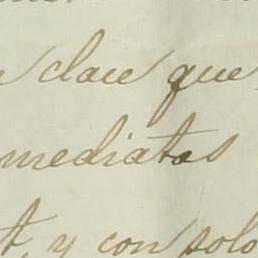 clase que
mediatas
t, y con solo